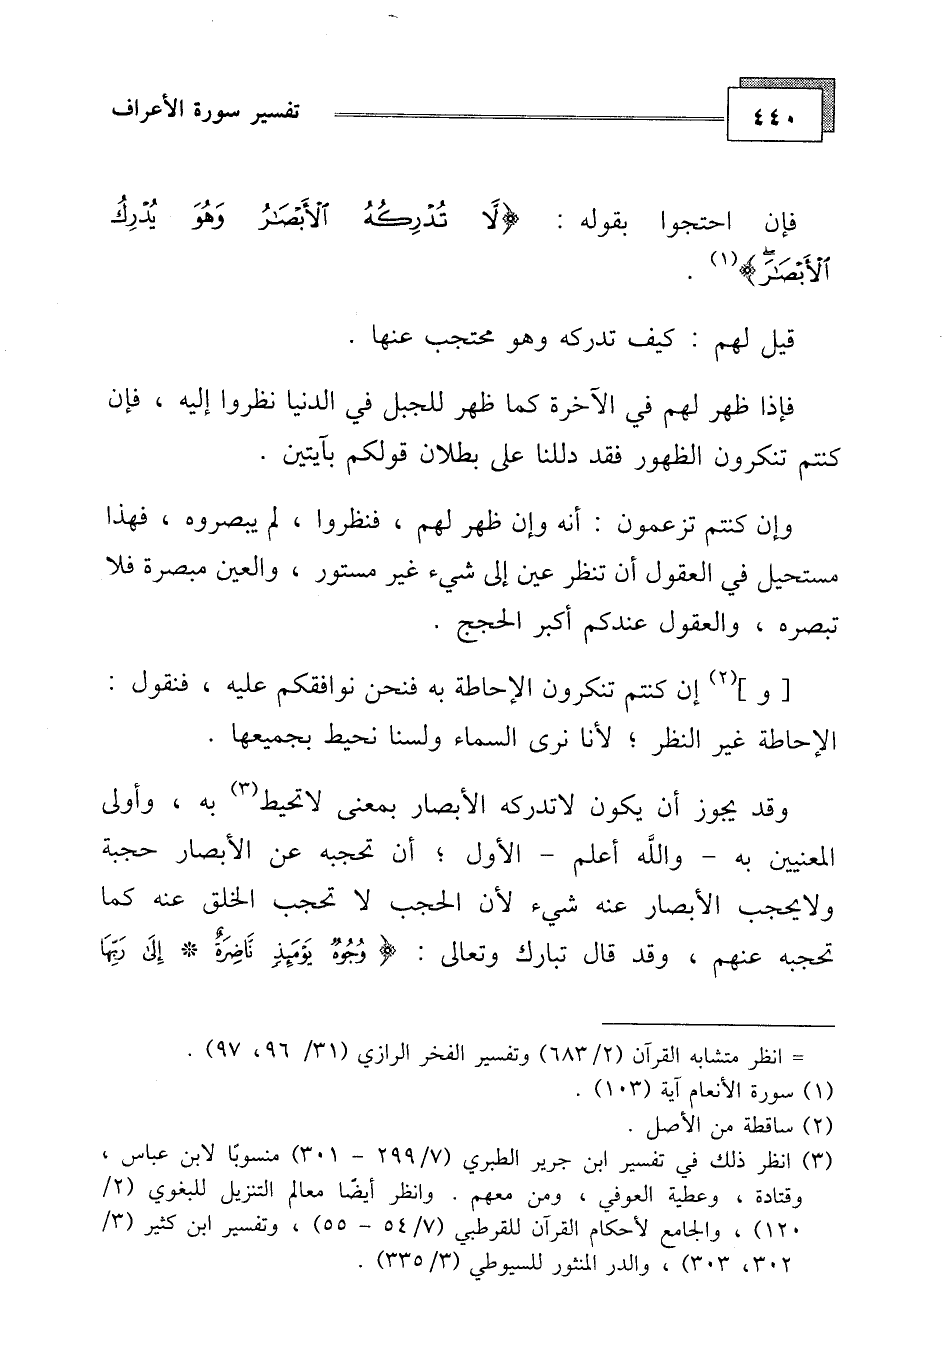 ٤٤٠ تفسير سورة الأعراف
فإن احتجوا بقوله : ﴿لَّا تُدْرِكُهُ ٱلْأَبْصَٰرُ وَهُوَ يُدْرِكُ
ٱلْأَبْصَٰرَۖ﴾(١) .
قيل لهم : كيف تدركه وهو محتجب عنها .
فإذا ظهر لهم في الآخرة كما ظهر للجبل في الدنيا نظروا إليه ، فإن
كنتم تنكرون الظهور فقد دللنا على بطلان قولكم بآيتين .
وإن كنتم تزعمون : أنه وإن ظهر لهم ، فنظروا ، لم يبصروه ، فهذا
مستحيل في العقول أن تنظر عين إلى شيء غير مستور ، والعين مبصرة فلا
تبصره ، والعقول عندكم أكبر الحجج .
[ و ](٢) إن كنتم تنكرون الإحاطة به فنحن نوافقكم عليه ، فنقول :
الإحاطة غير النظر ؛ لأنا نرى السماء ولسنا نحيط بجميعها .
وقد يجوز أن يكون لاتدركه الأبصار بمعنى لاتحيط(٣) به ، وأولى
المعنيين به – والله أعلم – الأول ؛ أن تحجبه عن الأبصار حجبة
ولايحجب الأبصار عنه شيء لأن الحجب لا تحجب الخلق عنه كما
تحجبه عنهم ، وقد قال تبارك وتعالى : ﴿ وُجُوهٌ يَوْمَئِذٍ نَّاضِرَةٌ * إِلَىٰ رَبِّهَا
= انظر متشابه القرآن (٦٨٣/٢) وتفسير الفخر الرازي (٣١/ ٩٦، ٩٧) .
(١) سورة الأنعام آية (١٠٣) .
(٢) ساقطة من الأصل .
(٣) انظر ذلك في تفسير ابن جرير الطبري (٢٩٩/٧ – ٣٠١) منسوبًا لابن عباس ،
وقتادة ، وعطية العوفي ، ومن معهم . وانظر أيضًا معالم التنزيل للبغوي (٢/
١٢٠) ، والجامع لأحكام القرآن للقرطبي (٥٤/٧ – ٥٥) ، وتفسير ابن كثير (٣/
٣٠٢، ٣٠٣) ، والدر المنثور للسيوطي (٣٣٥/٣) .